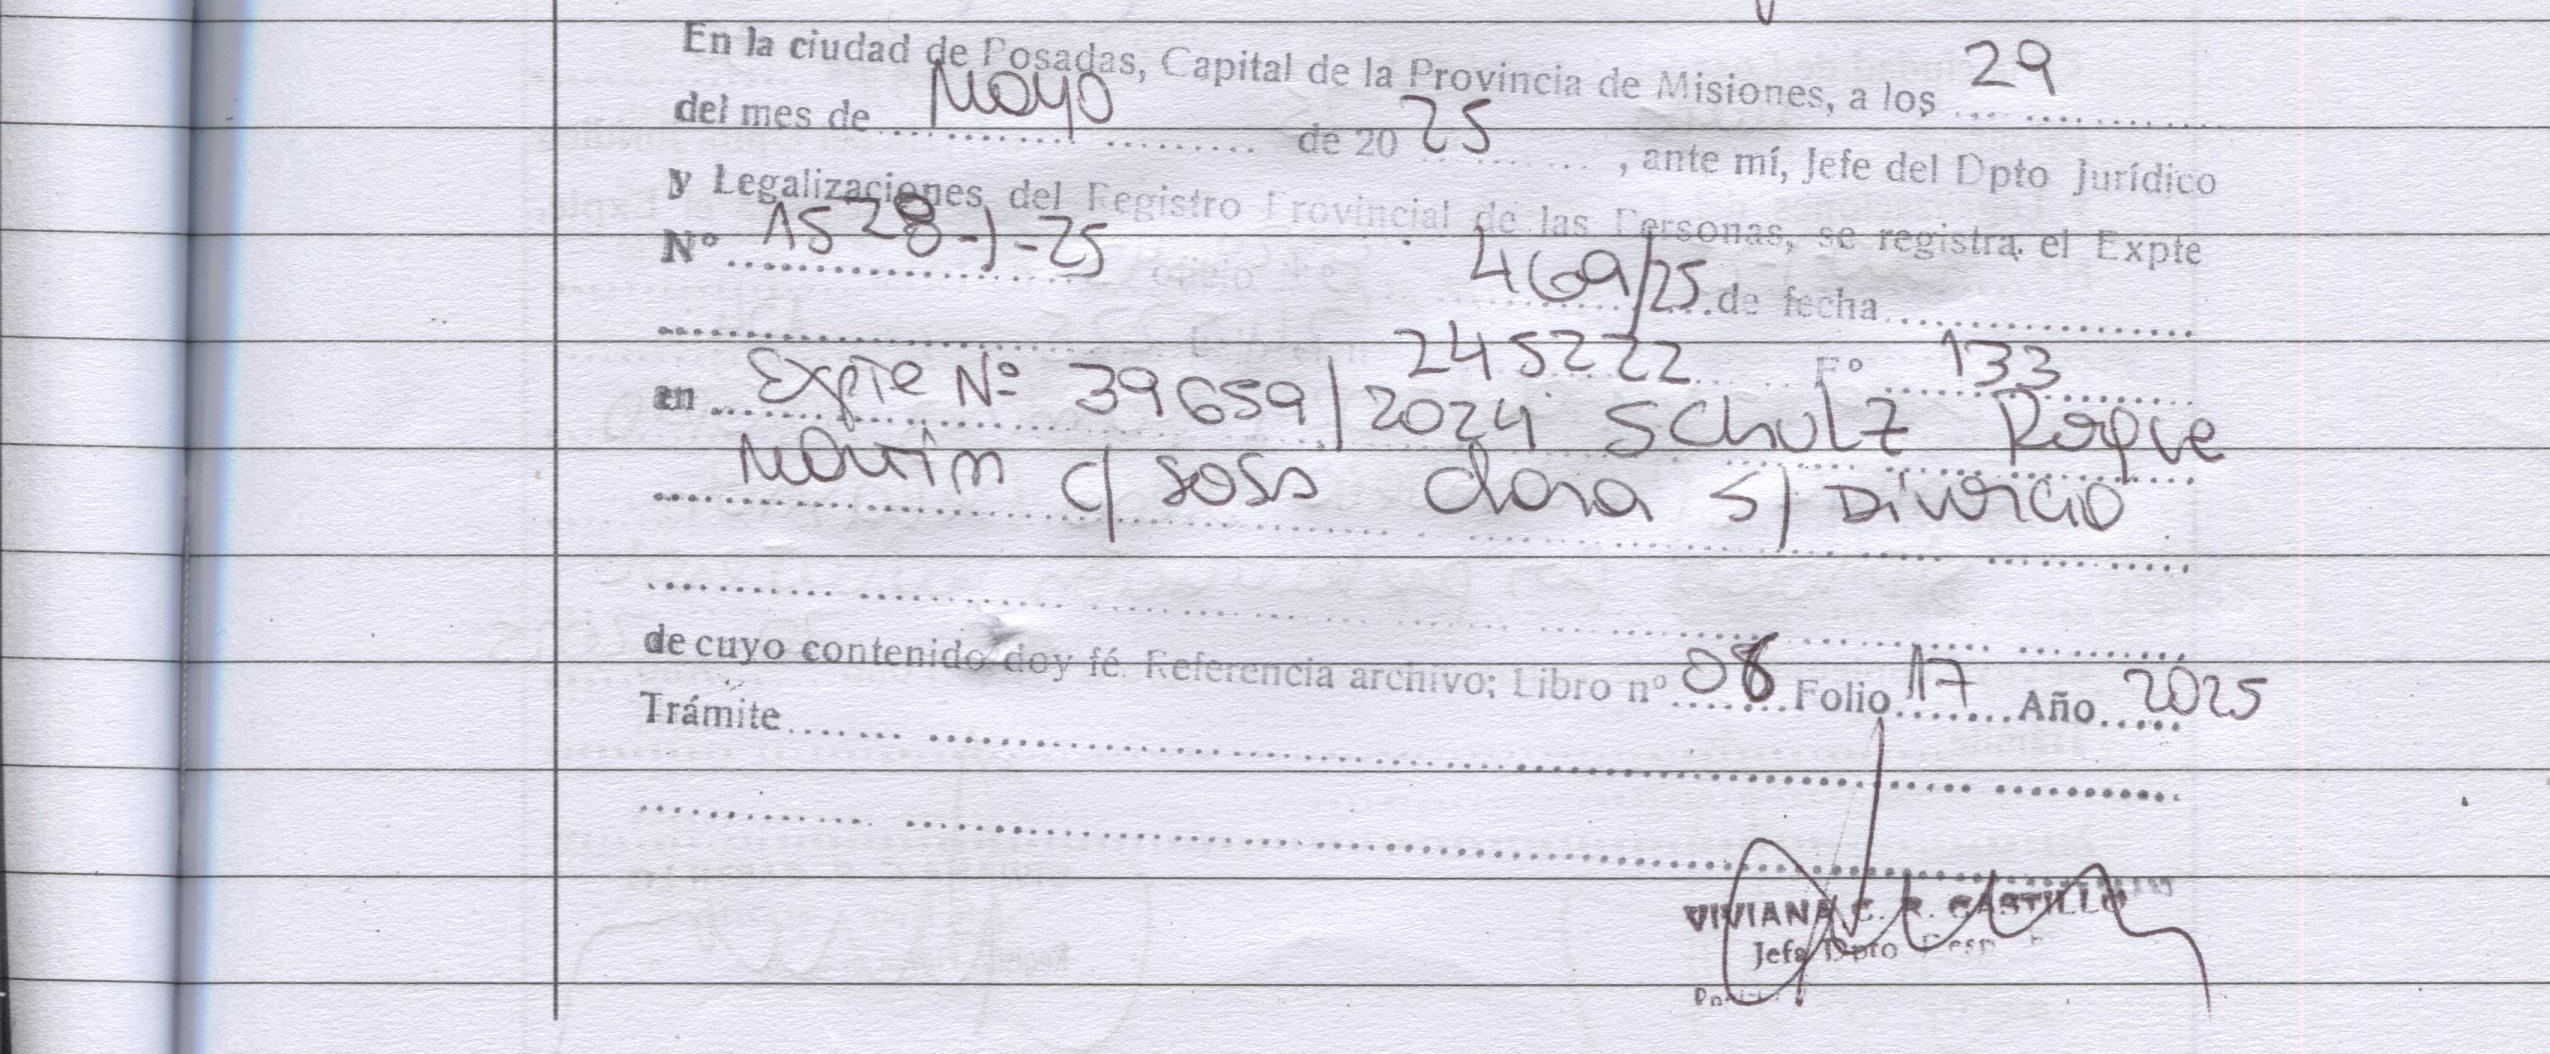 En la ciudad de Posadas, Capital de la Provincia de Misiones, a los 29
del mes de Mayo de 20 25, ante mí, Jefe del Dpto Jurídico
y Legalizaciones del Registro Provincial de las Personas, se registra el Expte
Nº 1528-J-25 469/25 de fecha
245222 Fº 133
en Expte Nº 39659/2024 Schulz Roque
Martin c/ Sosa Clara s/ Divorcio
de cuyo contenido doy fé Referencia archivo; Libro nº 08 Folio 17 Año 2025
Trámite
VIVIANA C. R. CASTILLO
Jefa Dpto